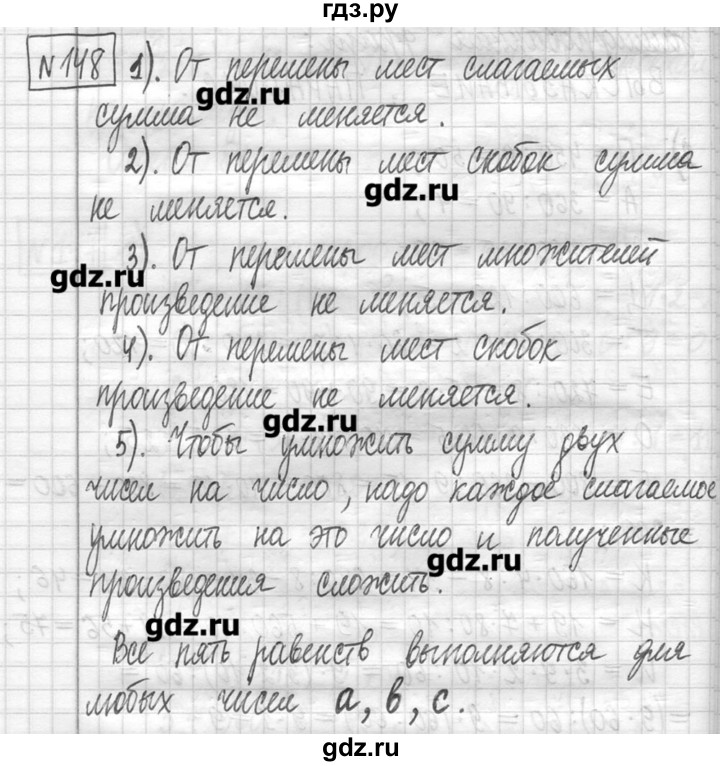 гдз.ру
№148 1). От перемены мест слагаемых
gdz.ru
сумма не меняется.
2). От перемены мест скобок сумма
gdz.ru
не меняется.
3). От перемены мест множителей
gdz.ru
произведение не меняется.
4). От перемены мест скобок
произведение не меняется.
gdz.ru
5). Чтобы умножить сумму двух
чисел на число, надо каждое слагаемое
умножить на это число и полученные
gdz.ru
произведения сложить.
gdz.ru
Все пять равенств выполняются для
любых чисел a, b, c.
gdz.ru